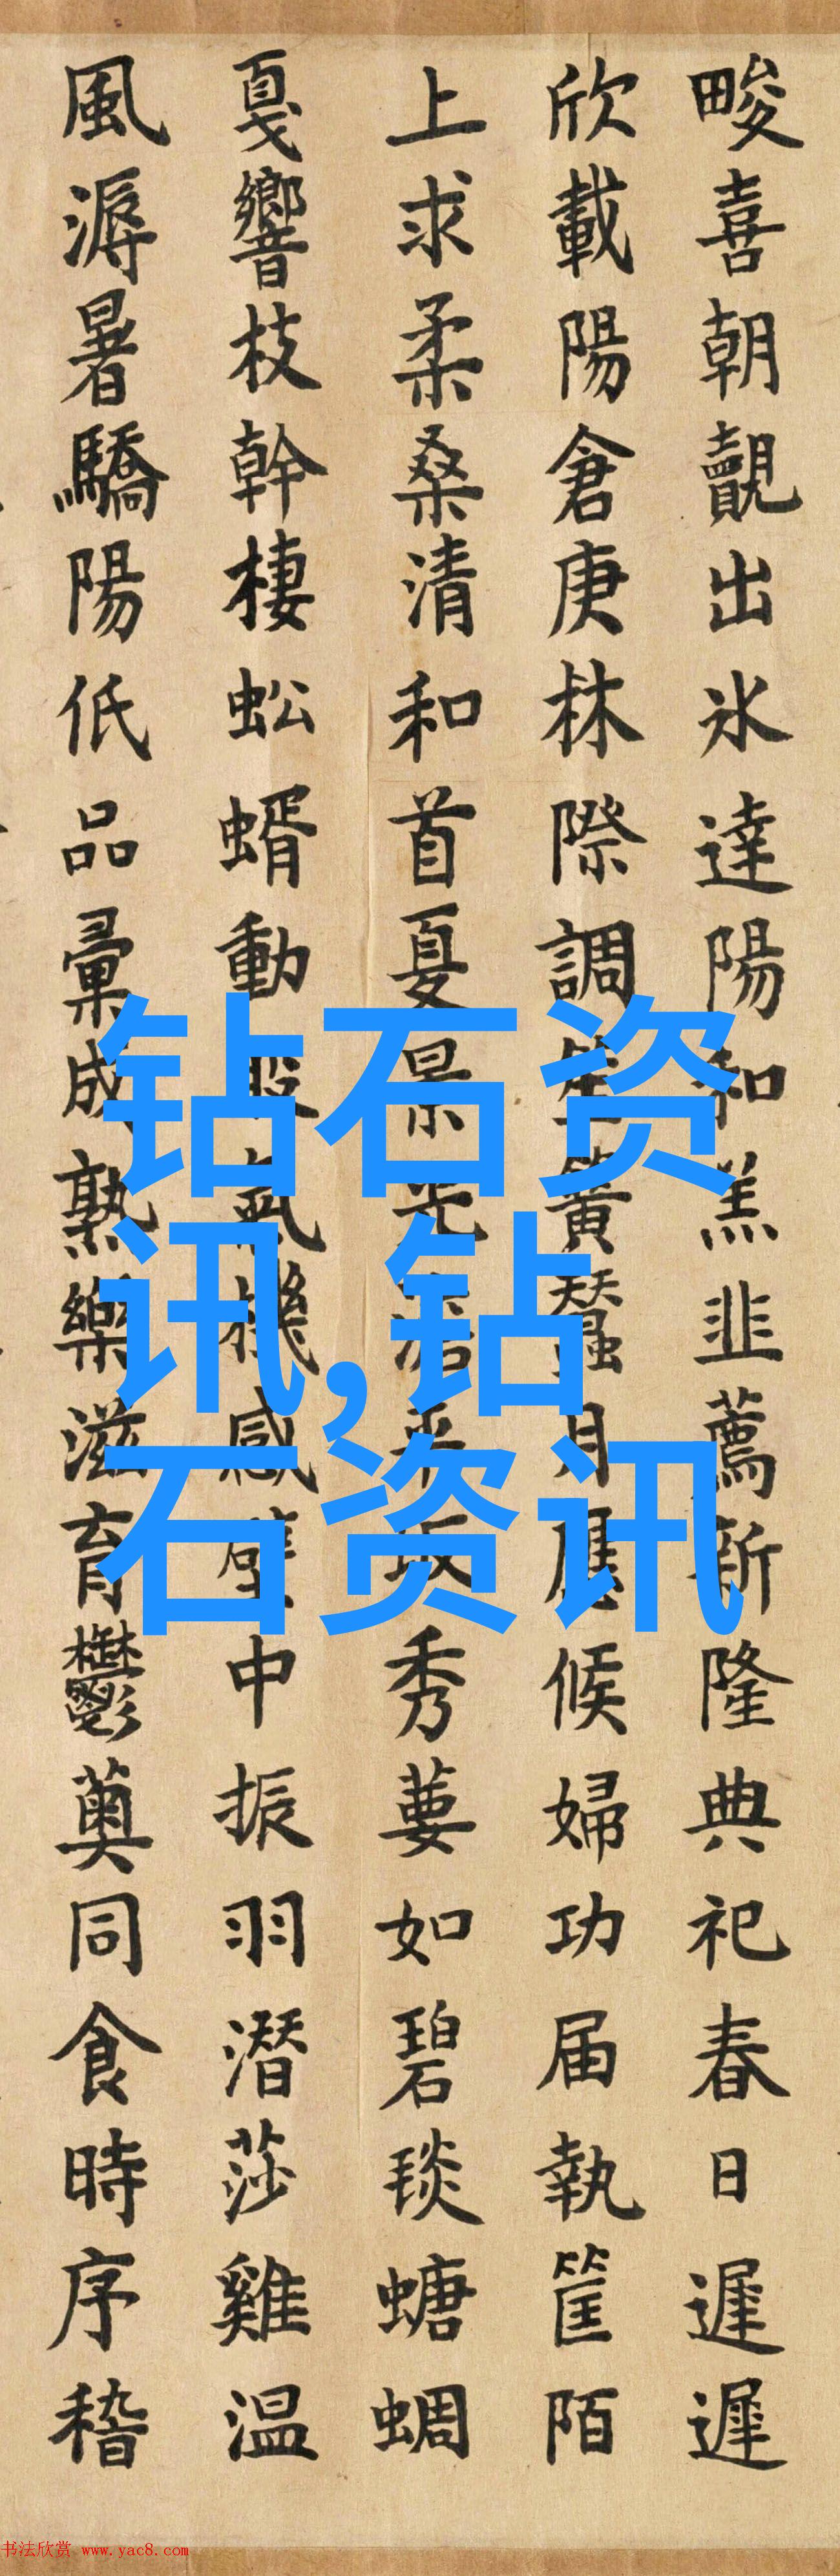 畯喜朝覿出冰達陽和羔韭薦新隆典祀春日遲遲
欣載陽倉庚林際調笙簧蠶月應候婦功届執筐陌
上求柔桑清和首夏景光秀葽如碧琰螗蜩
戛響枝幹棲蚣蝑動股氣機感壁中振羽潛莎雞温
風溽暑驕陽低品彙成熟樂滋育鬱薁同食時序稽
钻石资
讯,钻
石资讯
书法欣赏 www.yac8.com